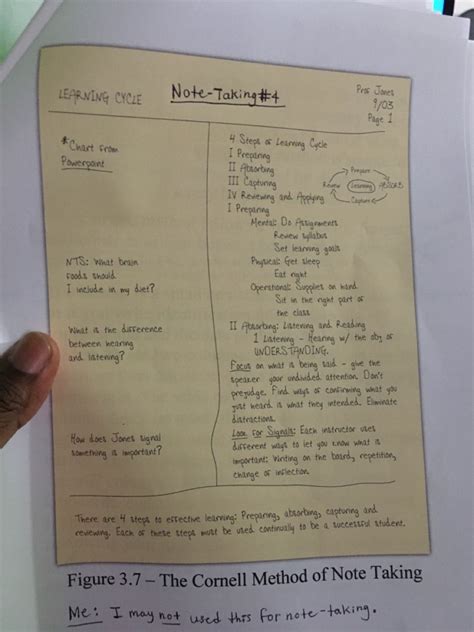 LEARNING CYCLE
Note-Taking #4
Prof Jones
9/03
Page 1
*Chart from
Powerpoint
NTS: What brain
foods should
I include in my diet?
What is the difference
between hearing
and listening?
How does Jones signal
something is important?
4 Steps of Learning Cycle
I Preparing
II Absorbing
III Capturing
IV Reviewing and Applying
Prepare
Review
Learning
Capture
I Preparing
Mental: Do Assignments
Review syllabus
Set learning goals
Physical: Get sleep
Eat right
Operational: Supplies on hand
Sit in the right part of
the class
II Absorbing: Listening and Reading
1 Listening - Hearing w/ the obj of
UNDERSTANDING.
Focus on what is being said - give the
speaker your undivided attention. Don't
prejudge. Find ways of confirming what you
just heard is what they intended. Eliminate
distractions.
Look for Signals: Each instructor uses
different ways to let you know what is
important: Writing on the board, repetition,
change of inflection.
There are 4 steps to effective learning: Preparing, absorbing, capturing and
reviewing. Each of these steps must be used continually to be a successful student.
Figure 3.7 – The Cornell Method of Note Taking
Me: I may not used this for note-taking.